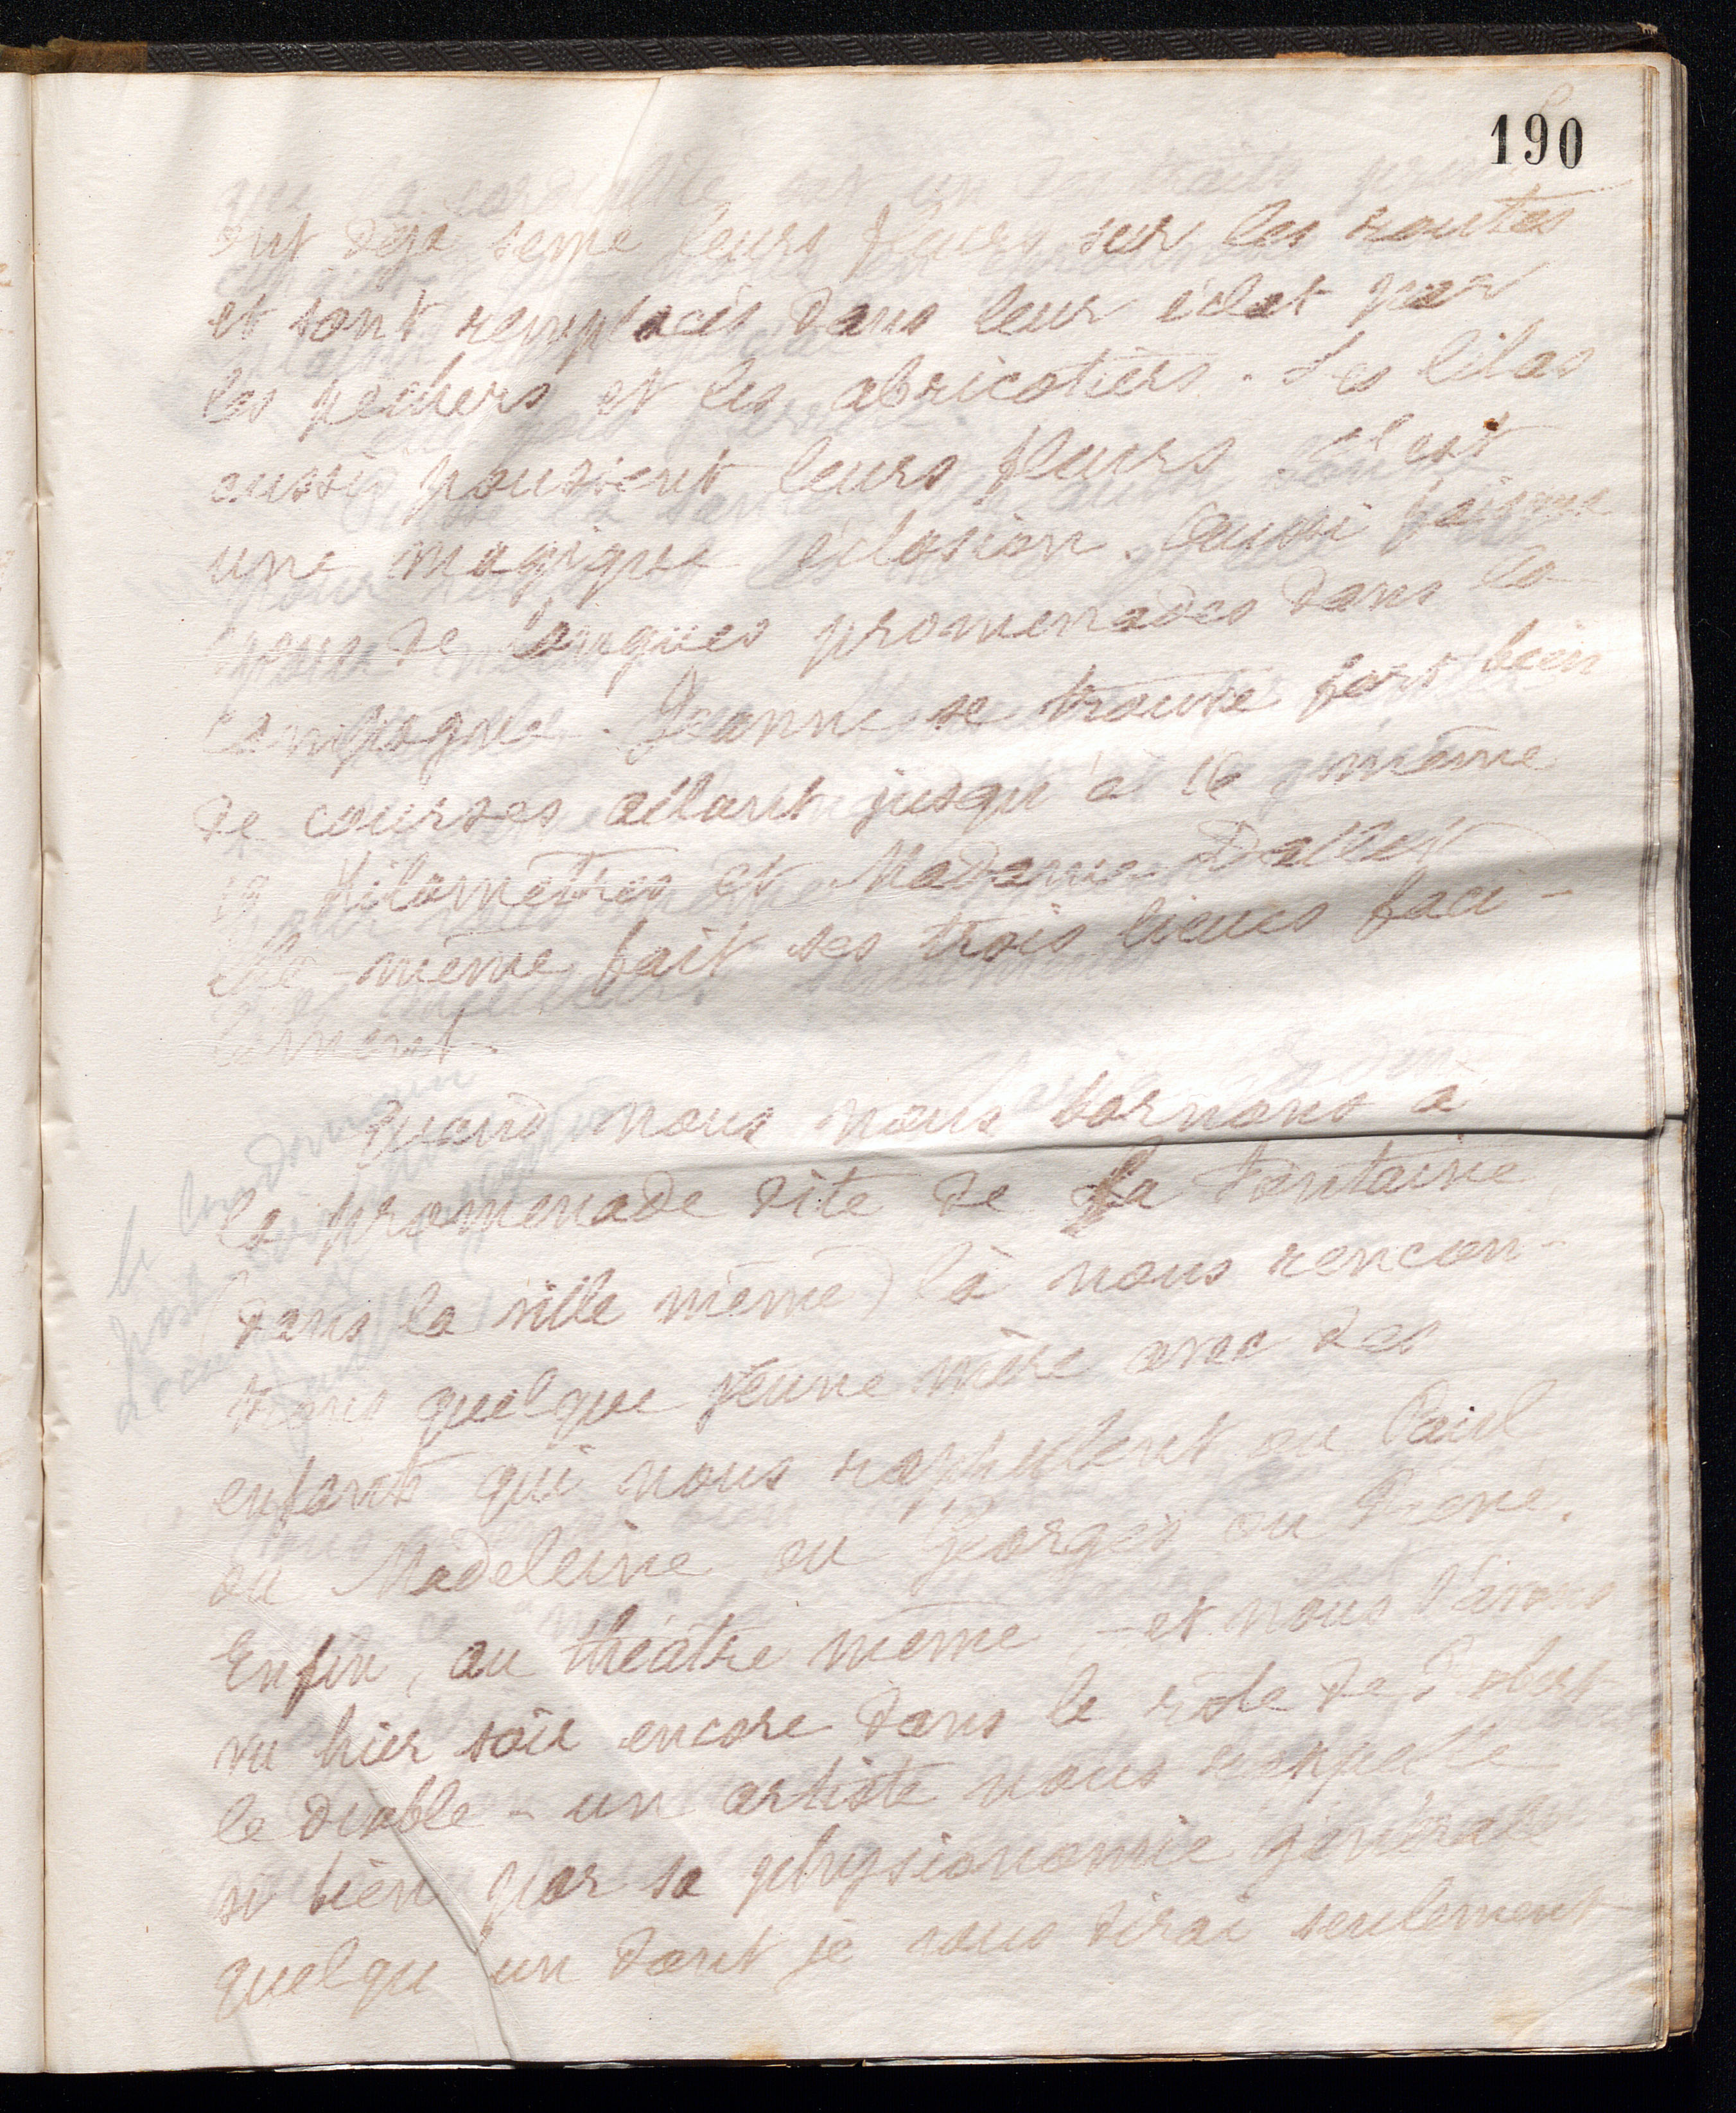 190
ont déjà semé leurs fleurs sur les routes
et sont remplacés dans leur éclat par
les pêchers et les abricotiers. Les lilas
aussi poussent leurs fleurs. C'est
une magique éclosion. Aussi faisons
nous de longues promenades dans la
campagne. Jeanne se trouve fort bien
de courses allant jusqu'à 16 même
18 Kilomètres et Madame Dallet
elle-même fait ses trois lieues faci-
lement.
Quand nous nous bornons à
la promenade dite de La Fontaine
(dans la ville même) là nous rencon-
trons quelque jeune mère avec des
enfants qui nous rappellent ou Paul
ou Madeleine ou Georges ou René.
Enfin, au théâtre même - et nous l'avons
vu hier soir encore dans le rôle de Robert
le diable - un artiste nous rappelle
si bien par sa physionomie générale
quelqu'un dont je vous dirai seulement